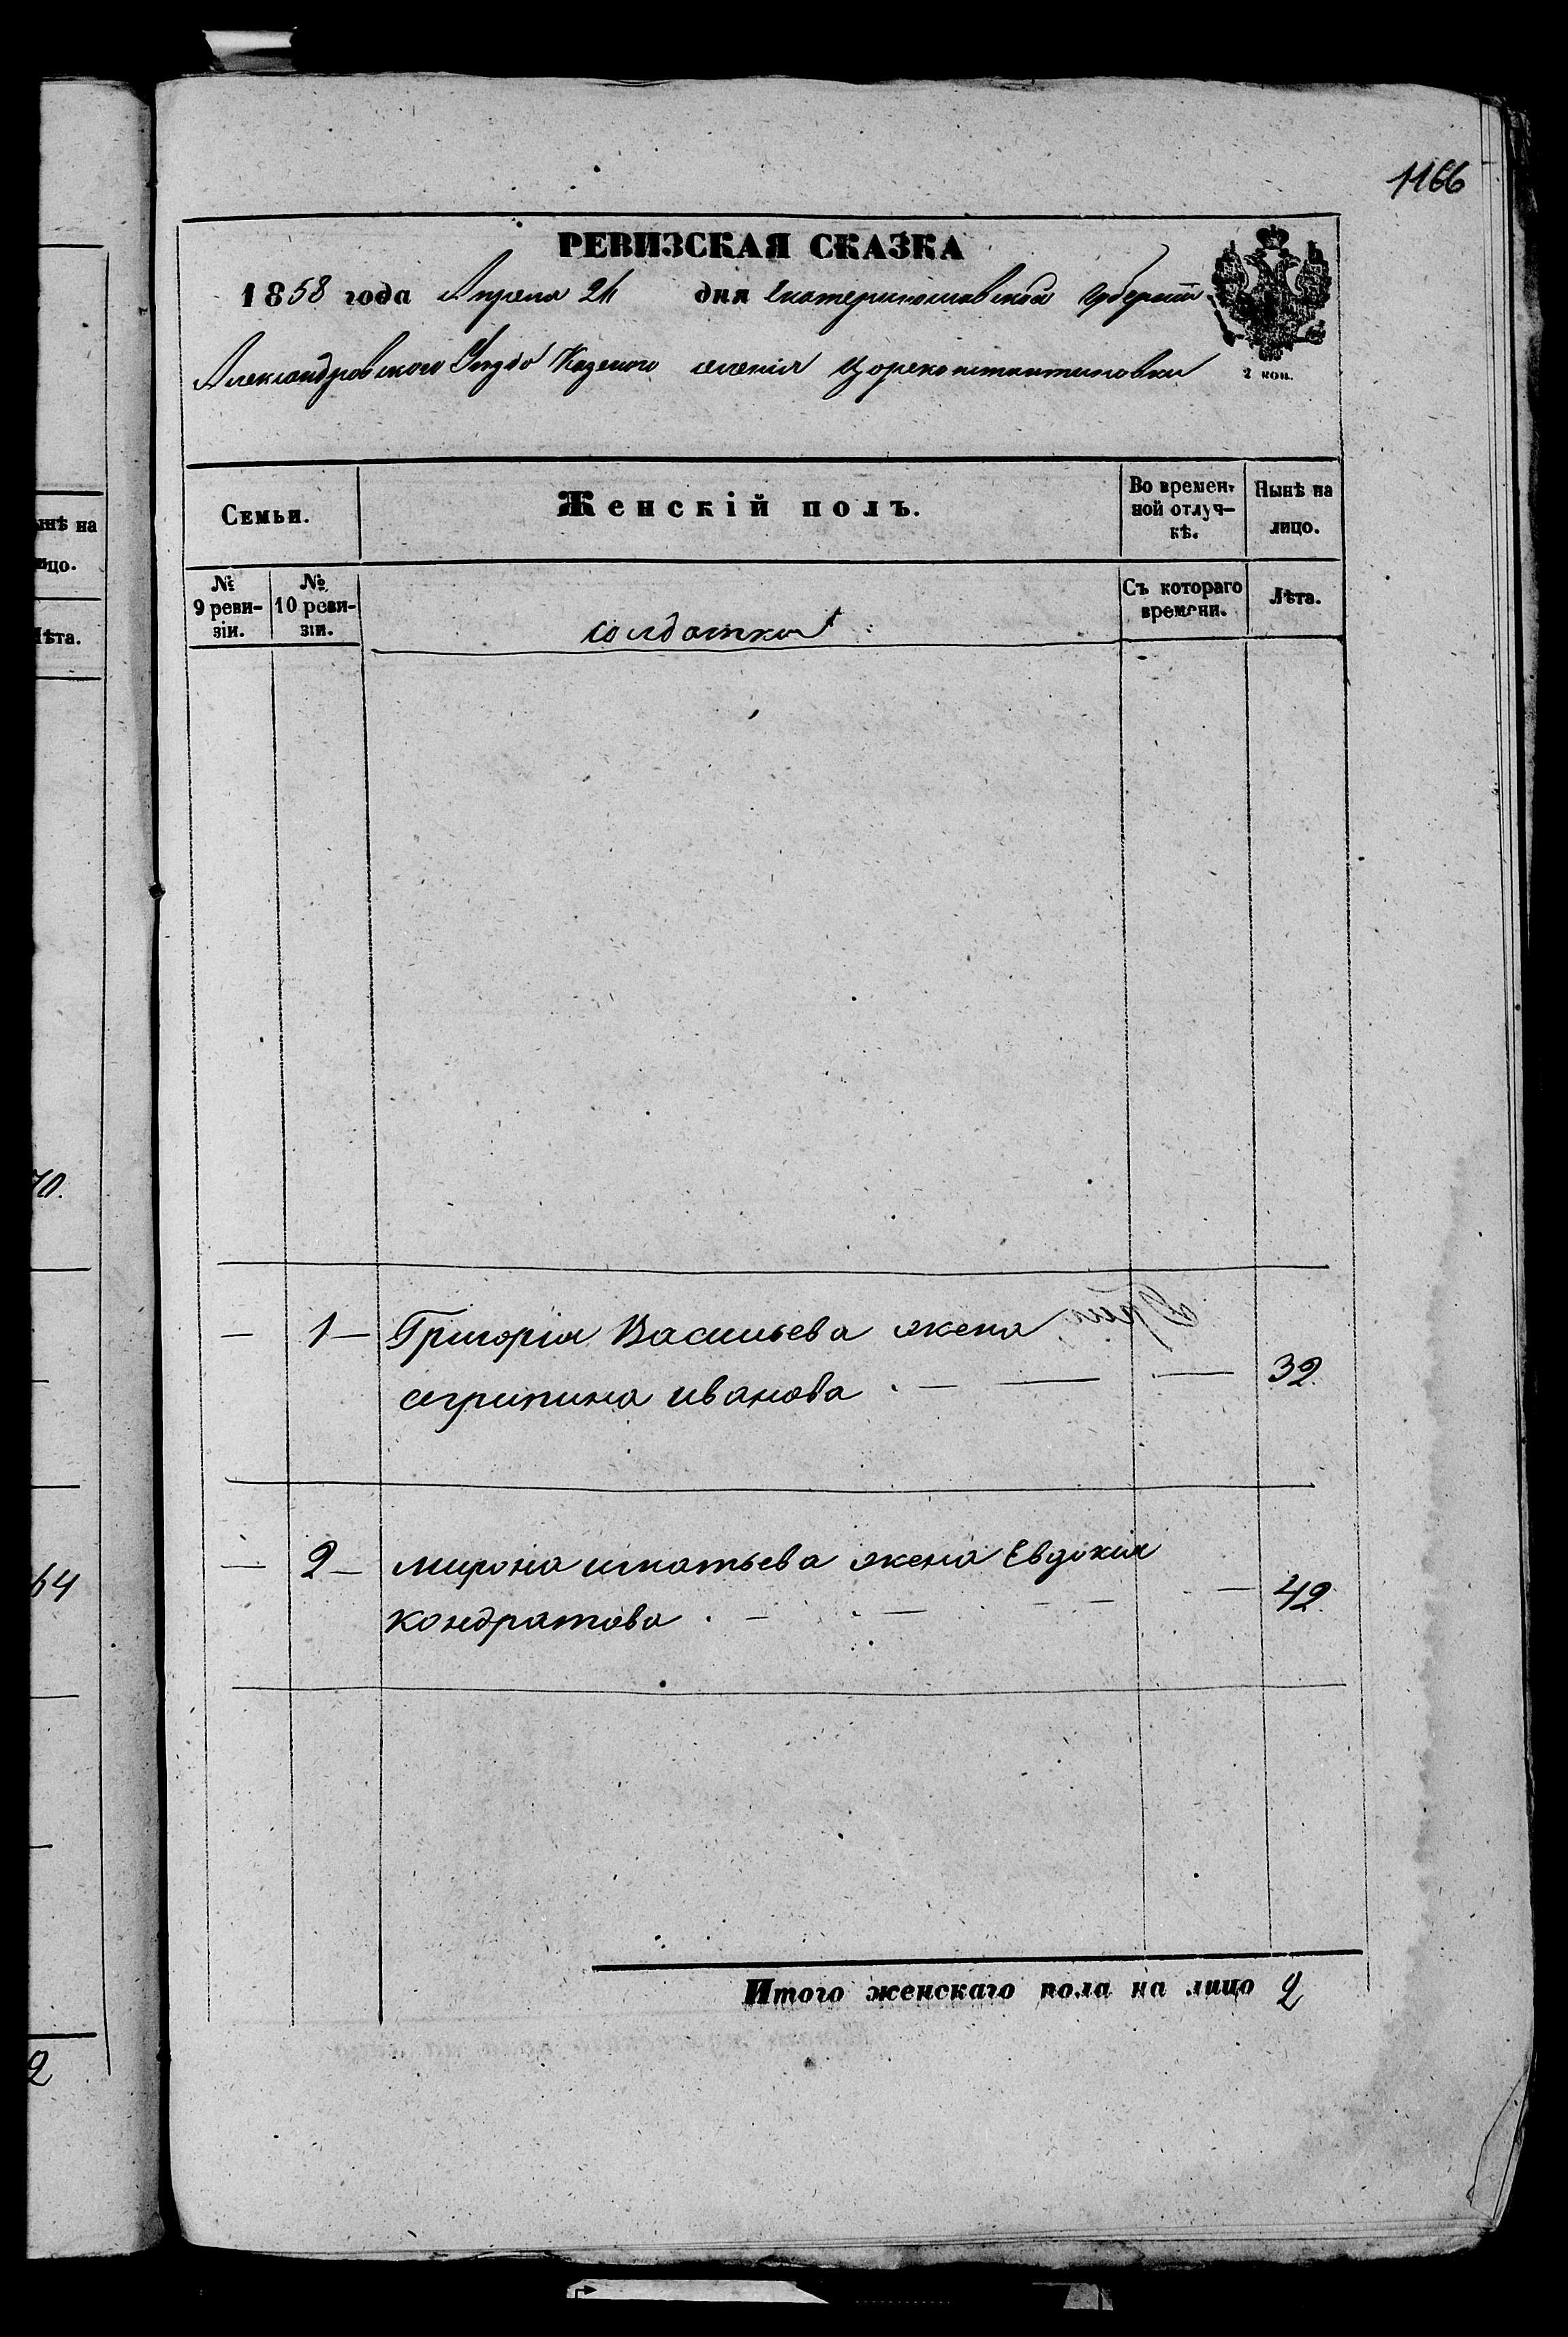 1166
РЕВИЗСКАЯ СКАЗКА
1858 года Апреля 24 дня Екатеринославской Губерніи
Александровского Уезда Казеного селенія Цареконстантиновки
2 коп.
Семьи.
Женскій полъ.
Во времен-
ной отлуч-
кѣ.
Нынѣ на
лицо.
№
9 реви-
зіи.
№
10 реви-
зіи.
солдатки
Съ котораго
времени.
Лѣта.
— 1 — Григорія Васильева жена
агрипина иванова — — — 32.
— 2 — мирона игнатьева жена Евдокия
кондратова — — — — — 42.
Итого женскаго пола на лицо 2
нѣ на
цо.
ѣта.
70.
64
2